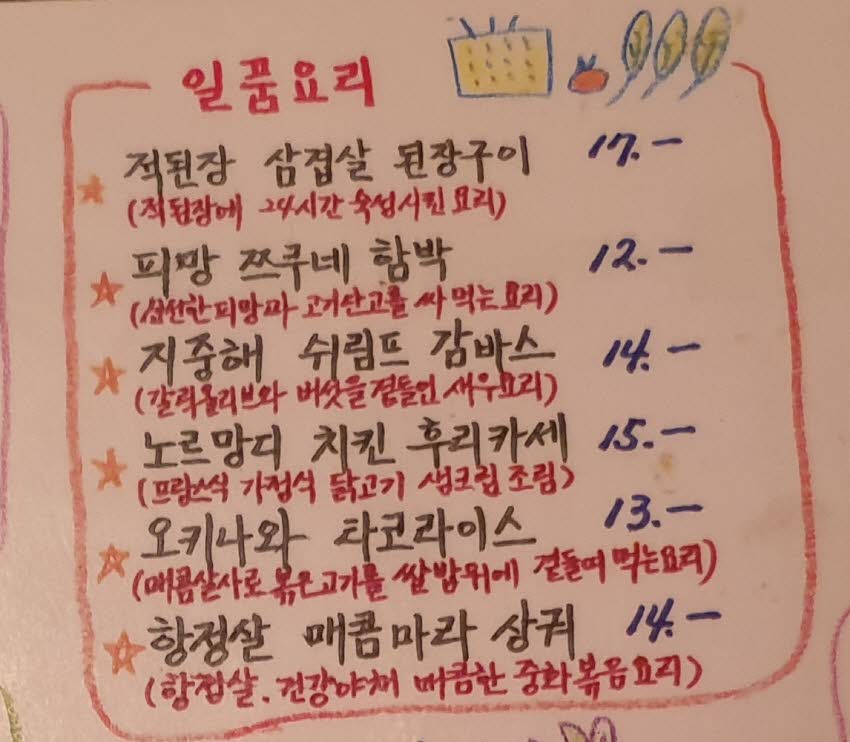 일품요리
적된장 삼겹살 된장구이 17.-
(적된장에 24시간 숙성시킨 요리)
피망 쯔쿠네 함박 12.-
(신선한 피망과 고기완고를 싸 먹는 요리)
지중해 쉬림프 감바스 14.-
(갈릭올리브와 버섯을 곁들인 새우요리)
노르망디 치킨 후리카세 15.-
(프랑스식 가정식 닭고기 생크림 조림)
오키나와 타코라이스 13.-
(매콤살사로 볶은고기를 쌀밥위에 곁들여 먹는요리)
항정살 매콤마라 샹궈 14.-
(항정살. 건강야채 매콤한 중화볶음요리)